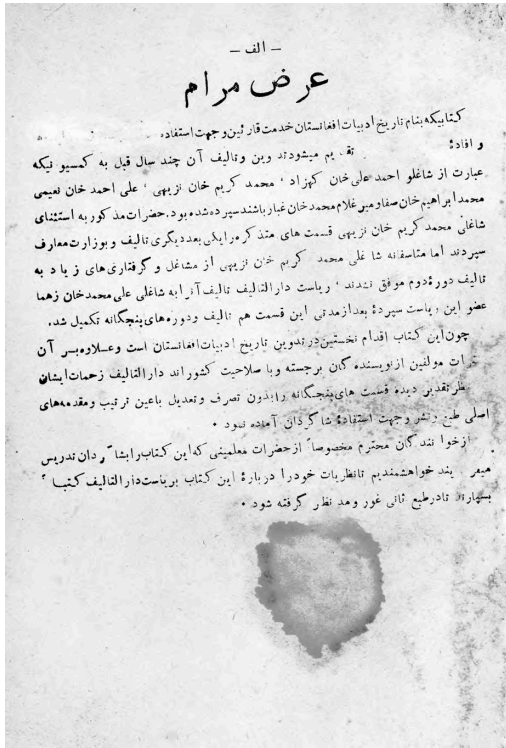 - الف -
عرض مرام
کتابیکه بنام تاریخ ادبیات افغانستان خدمت قارئین و جهت استفاده
و افادهٔ تقدیم میشود تدوین و تالیف آن چند سال قبل به کمسیو نیکه
عبارت از شاغلو احمد علی خان کهزاد ، محمد کریم خان نزیهی ، علی احمد خان نعیمی
محمد ابراهیم خان صفا و میر غلام محمد خان غبار باشند سپرده شده بود. حضرات مذکور به استثنای
شاغلی محمد کریم خان نزیهی قسمت های متذکره را یکی بعد دیگری تالیف و بوزارت معارف
سپردند اما متاسفانه شاغلی محمد کریم خان نزیهی از مشاغل و گرفتاری های زیاد به
تالیف دورهٔ دوم موفق نشدند ، ریاست دار التالیف تالیف آنرا به شاغلی علی محمد خان زهما
عضو این ریاست سپردهٔ بعد از مدتی این قسمت هم تالیف و دوره های پنجگانه تکمیل شد.
چون این کتاب اقدام نخستین در تدوین تاریخ ادبیات افغانستان است و علاوه بر آن
مولفین از نویسنده گان برجسته و با صلاحیت کشور اند دار التالیف زحمات ایشان
تقدیر دیده قسمت های پنجگانه را بدون تصرف و تعدیل باعین ترتیب و مقدمه های
اصلی طبع و نشر و جهت استفادهٔ شاگردان آماده نمود .
از خوا نند گان محترم مخصوصاً از حضرات معلمینی که این کتاب را تدریس
خواهشمندیم تا نظریات خود را در بارهٔ این کتاب بریاست دار التالیف کتباً
بسپارند تا در طبع ثانی غور و مد نظر گرفته شود .